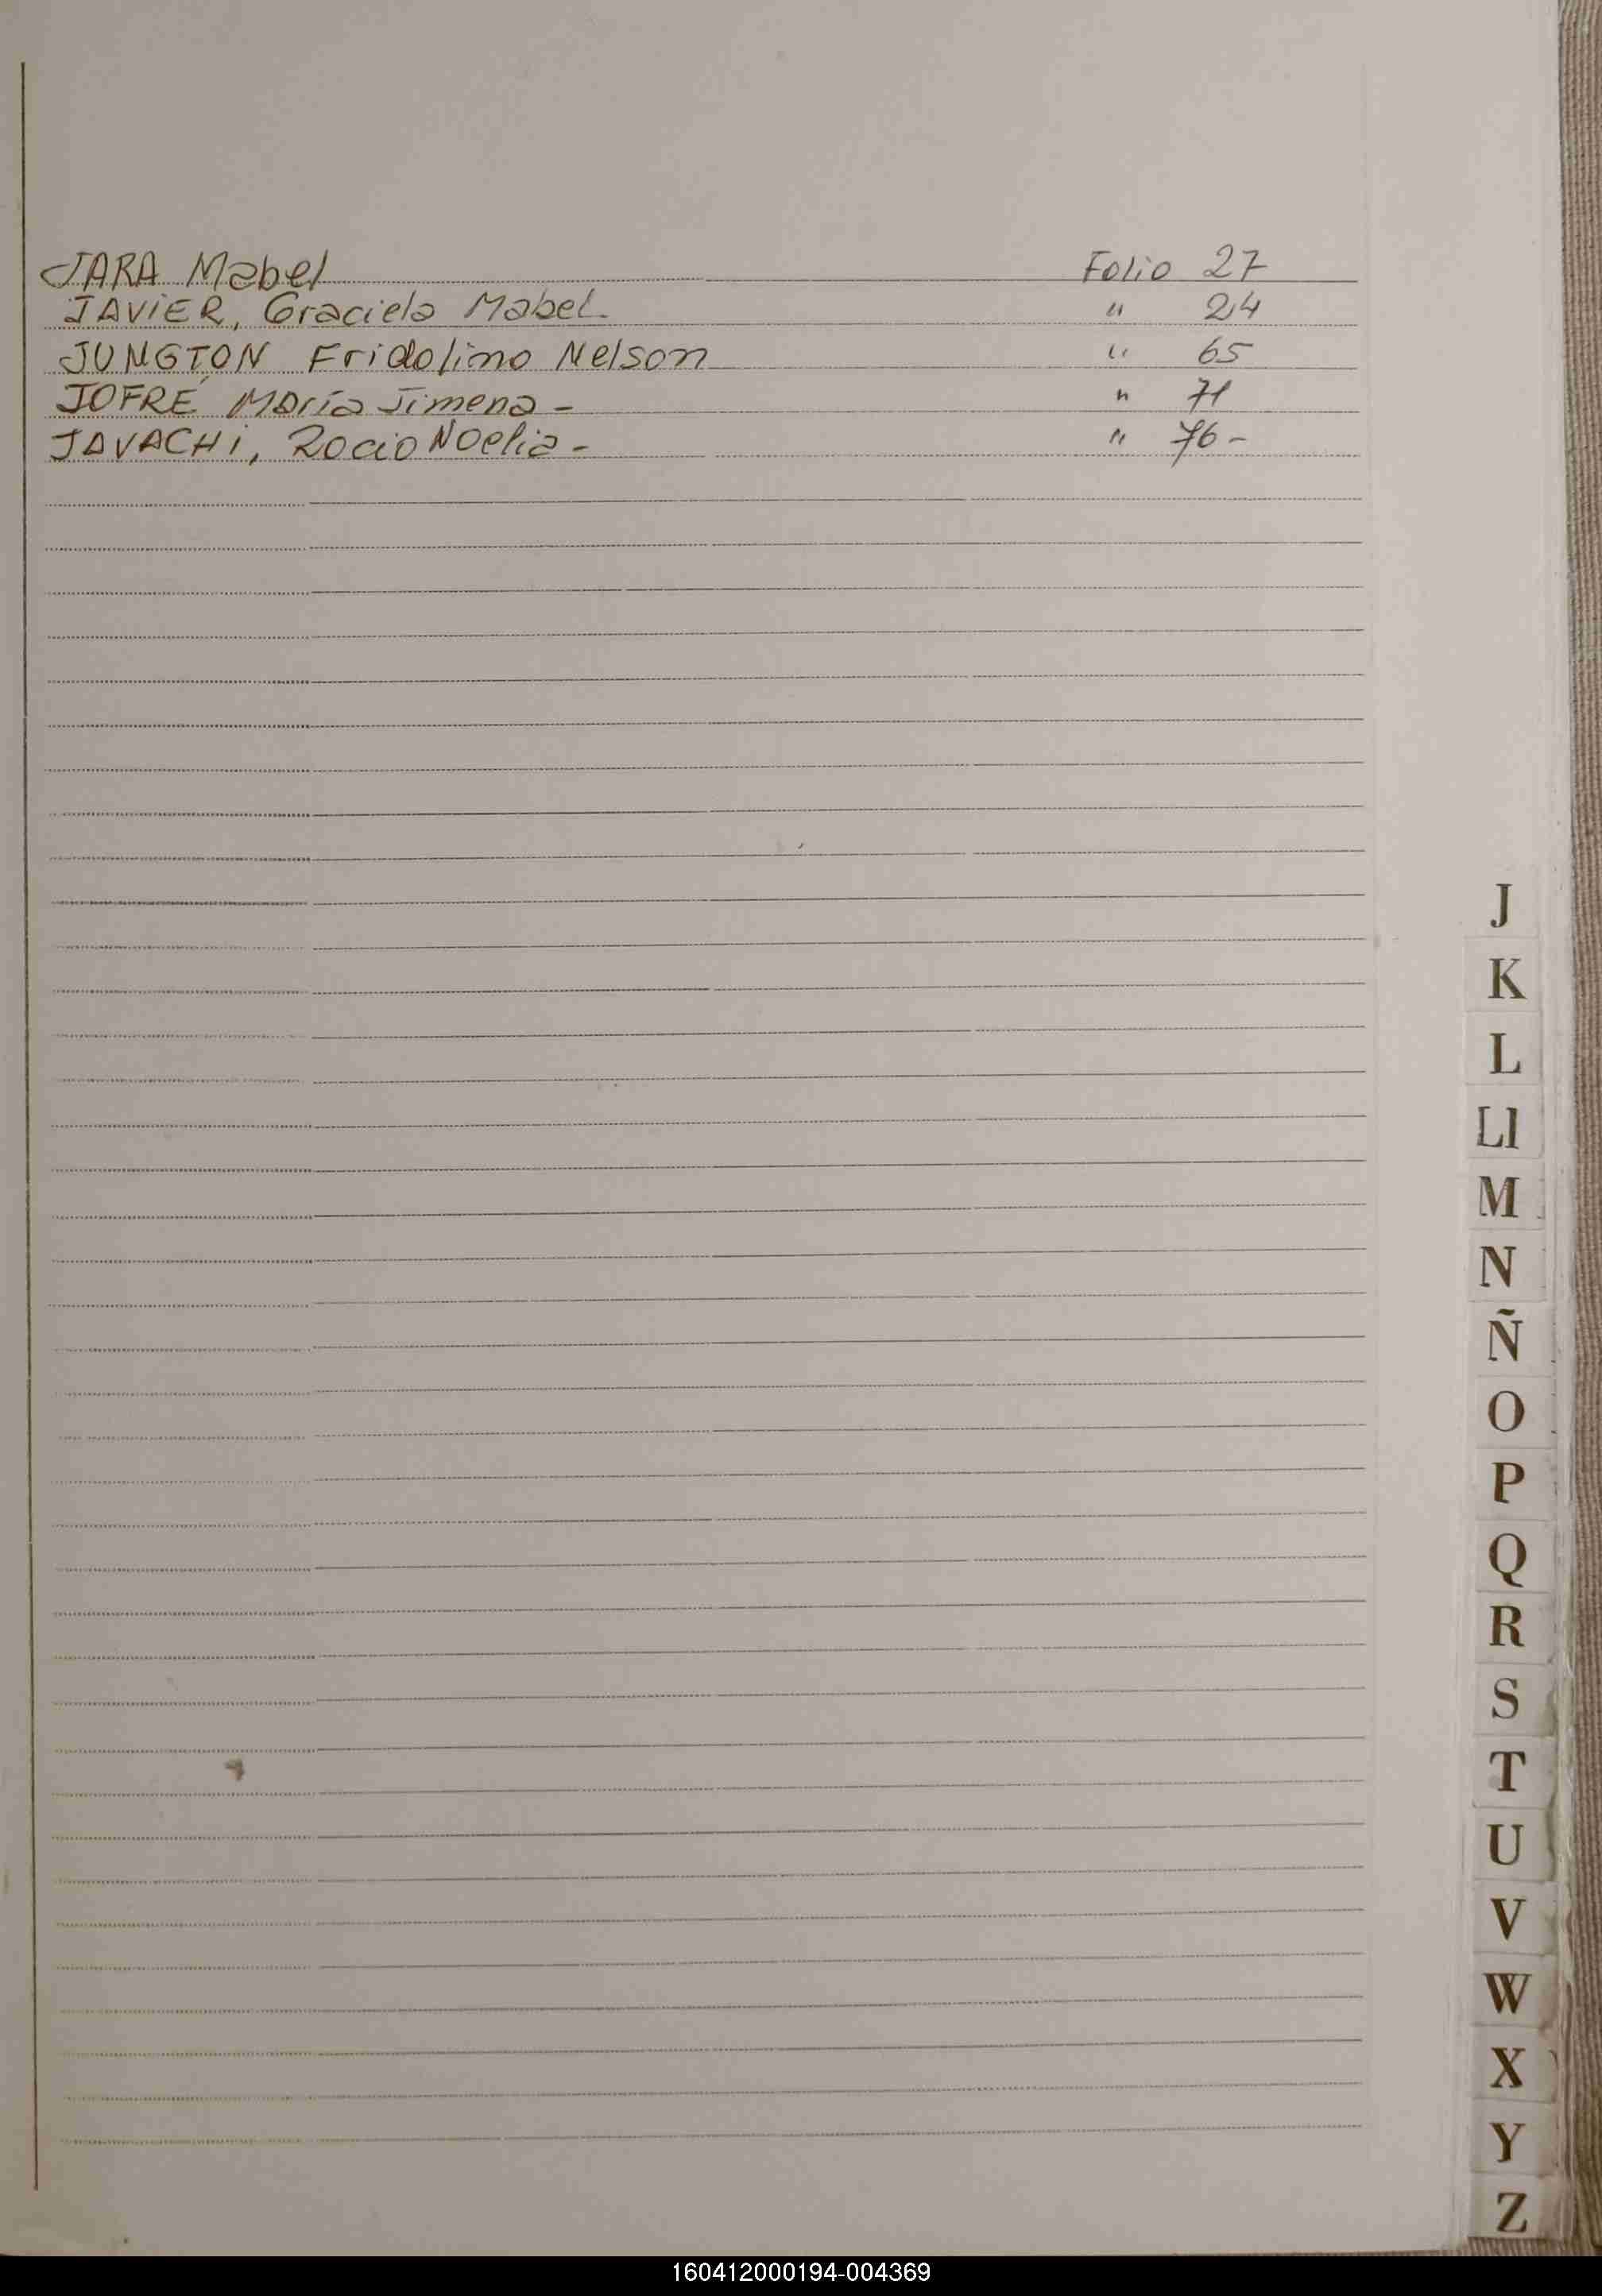 JARA Mabel Folio 27
JAVIER, Graciela Mabel. " 24
JUNGTON Fridolino Nelson " 65
JOFRÉ María Jimena - " 71
JAVACHI, Rocio Noelia - " 76 -
J
K
L
Ll
M
N
Ñ
O
P
Q
R
S
T
U
V
W
X
Y
Z
160412000194-004369